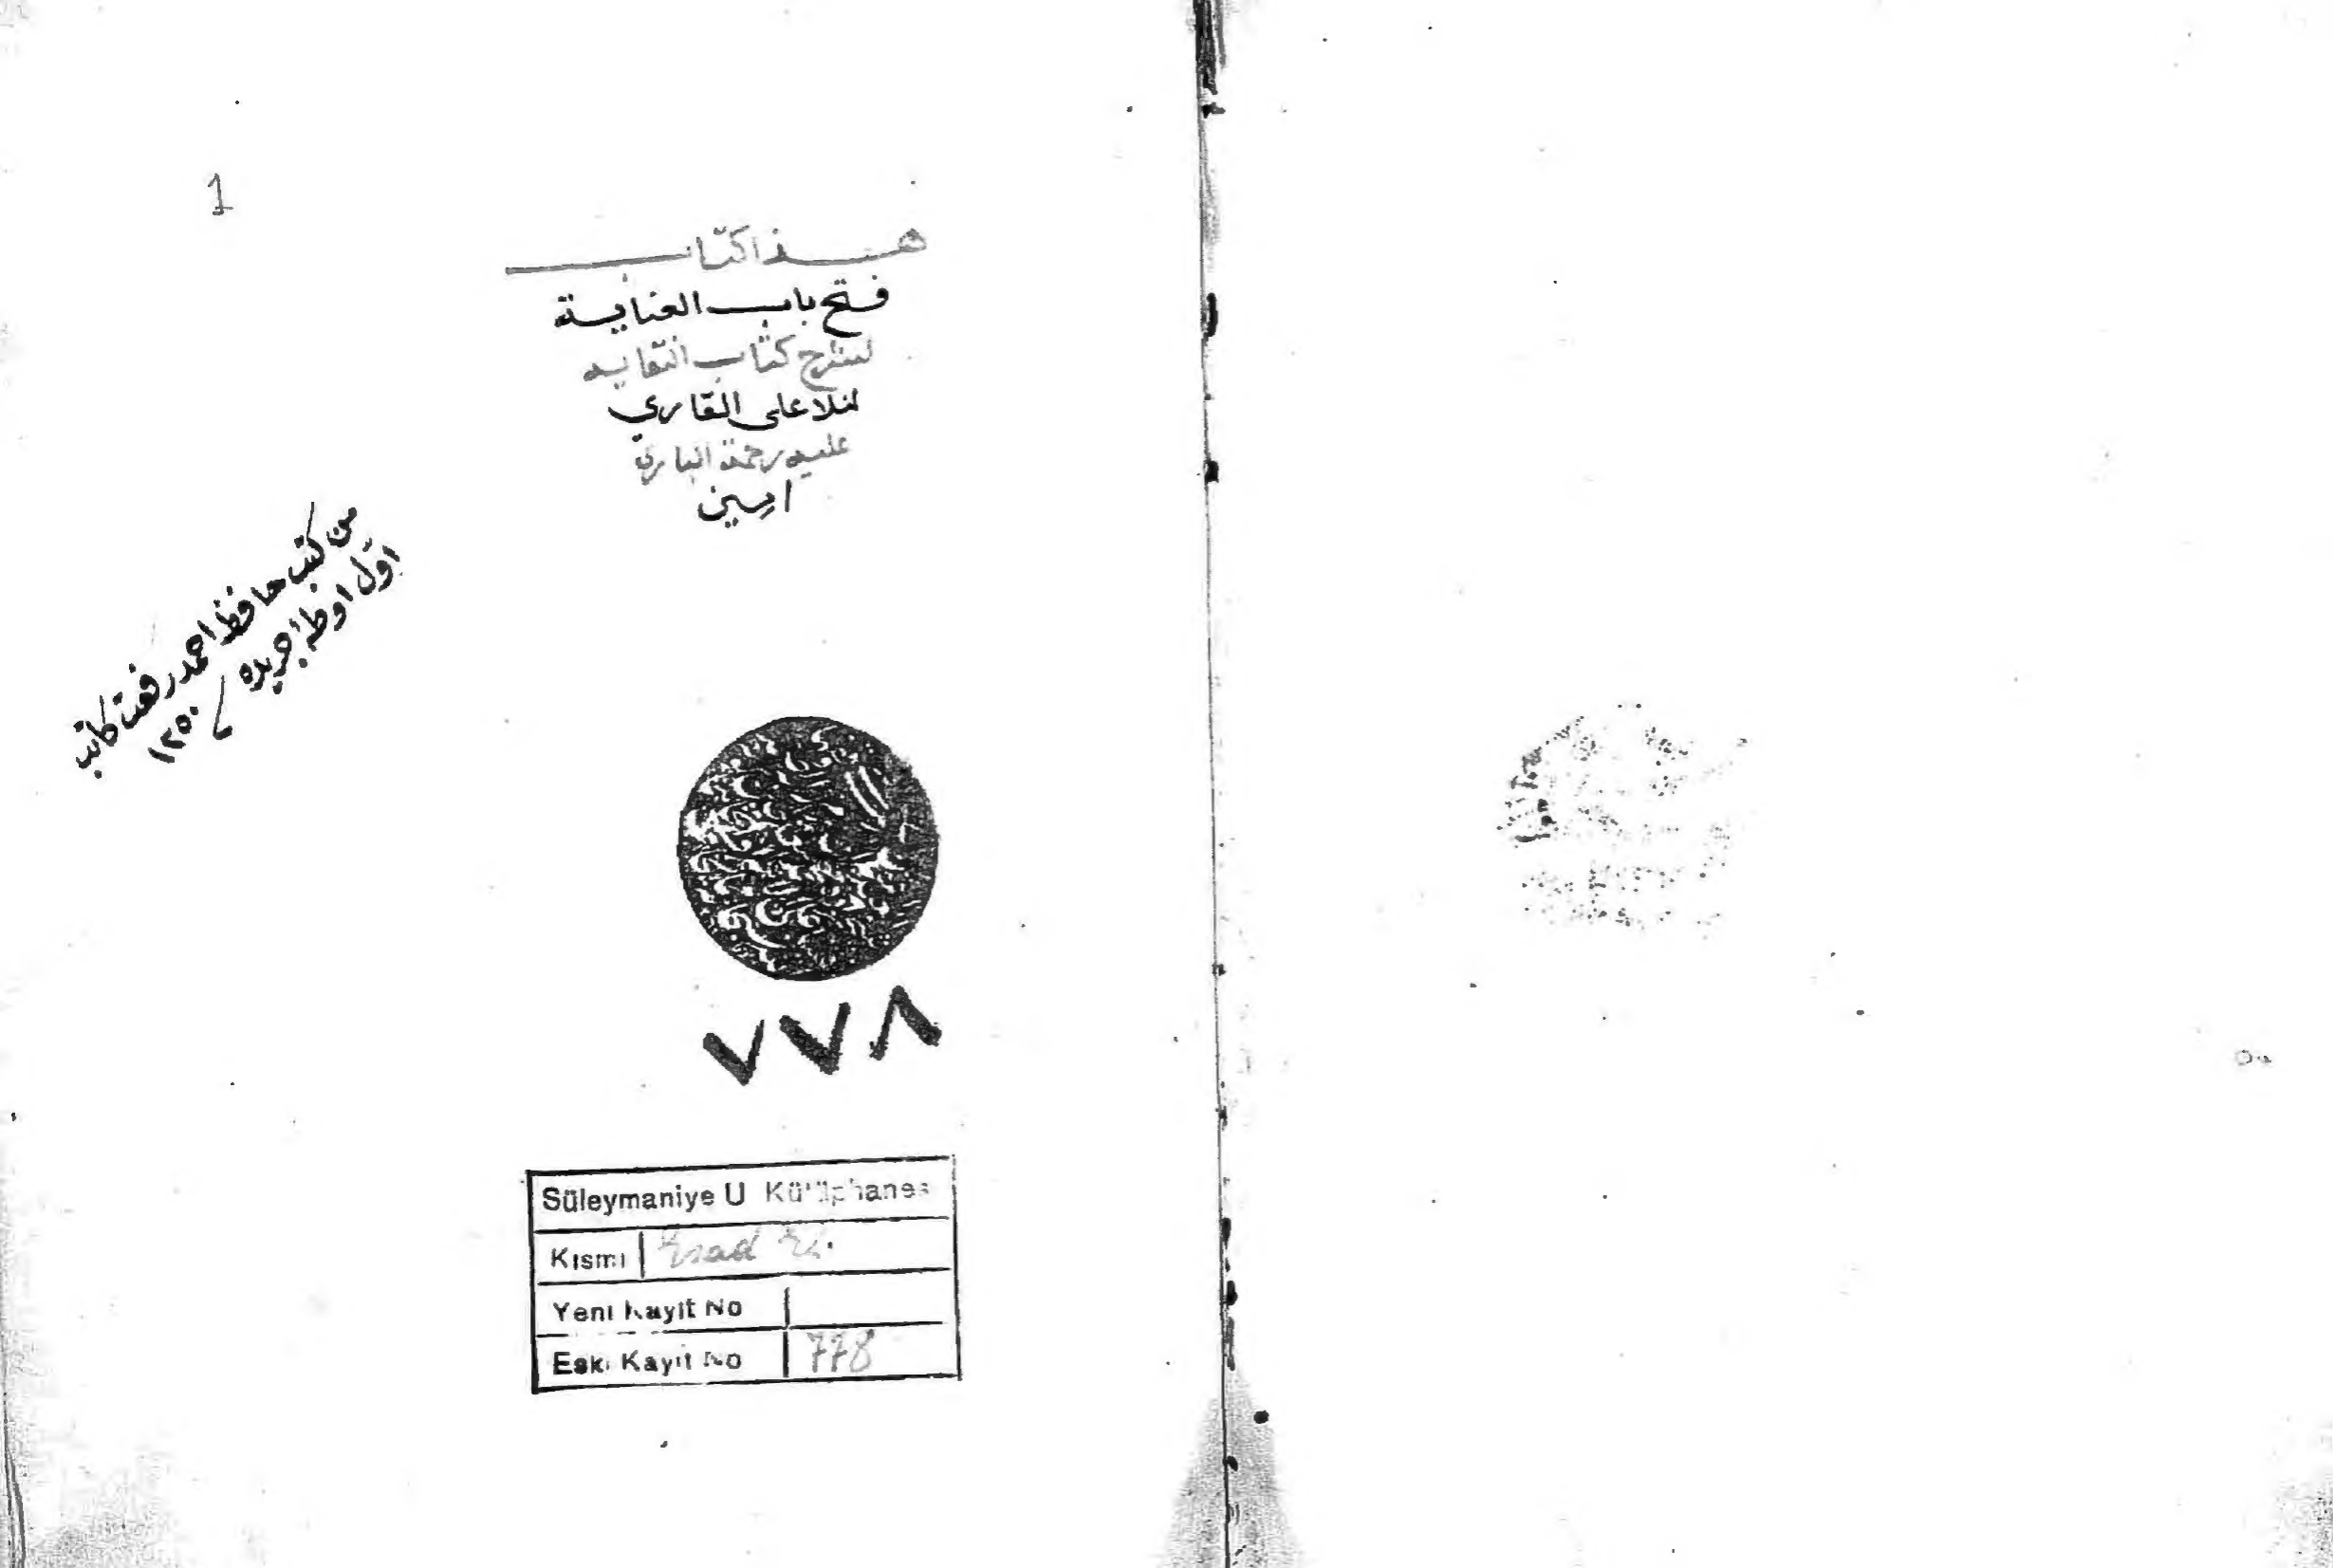 1
هذا كتاب
فتح باب العناية
لشرح كتاب النقايه
لمنلا على القاري
عليه رحمة الباري
امين
من كتب حافظ احمد رفعت كاتب
اول اوطه جريده
١٢٥٠
٧٧٨
Süleymaniye U Kütüphanes
Kısmı Esad Ef.
Yeni Kayıt No
Eski Kayıt No 778